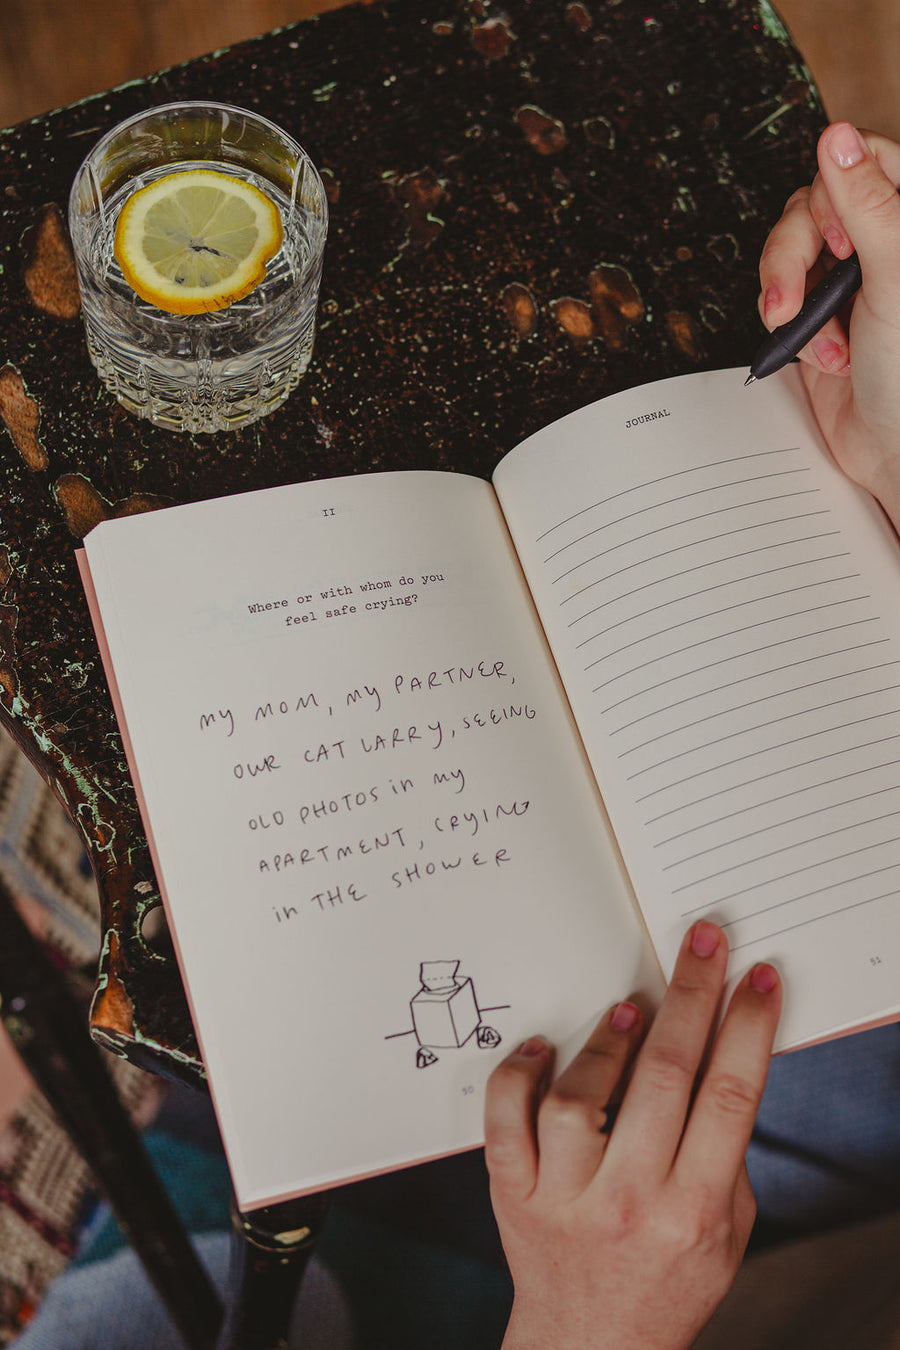 II
Where or with whom do you
feel safe crying?
my MOM, my PARTNER,
OUR CAT LARRY, SEEING
OLD PHOTOS in my
APARTMENT, CRYING
in THE SHOWER
50
JOURNAL
51